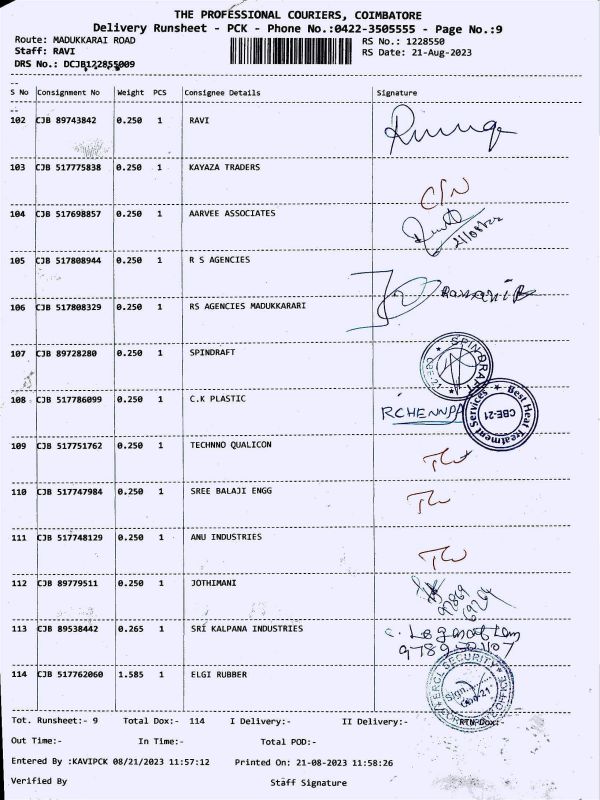 THE PROFESSIONAL COURIERS, COIMBATORE
Delivery Runsheet - PCK - Phone No.:0422-3505555 - Page No.:9
Route: MADUKKARAI ROAD RS No.: 1228550
Staff: RAVI RS Date: 21-Aug-2023
DRS No.: DCJB122855009
S No Consignment No Weight PCS Consignee Details Signature
102 CJB 89743842 0.250 1 RAVI
103 CJB 517775838 0.250 1 KAYAZA TRADERS
C/N
104 CJB 517698857 0.250 1 AARVEE ASSOCIATES
105 CJB 517808944 0.250 1 R S AGENCIES
106 CJB 517808329 0.250 1 RS AGENCIES MADUKKARARI
107 CJB 89728280 0.250 1 SPINDRAFT
SPIN-DRAFT CBE-21
108 CJB 517786099 0.250 1 C.K PLASTIC
Best Heat Treatment Services CBE-21
109 CJB 517751762 0.250 1 TECHNNO QUALICON
110 CJB 517747984 0.250 1 SREE BALAJI ENGG
111 CJB 517748129 0.250 1 ANU INDUSTRIES
112 CJB 89779511 0.250 1 JOTHIMANI
113 CJB 89538442 0.265 1 SRI KALPANA INDUSTRIES
114 CJB 517762060 1.585 1 ELGI RUBBER
ERCL SECURITY
Tot. Runsheet:- 9 Total Dox:- 114 I Delivery:- II Delivery:- RTN Dox:-
Out Time:- In Time:- Total POD:-
Entered By :KAVIPCK 08/21/2023 11:57:12 Printed On: 21-08-2023 11:58:26
Verified By Staff Signature